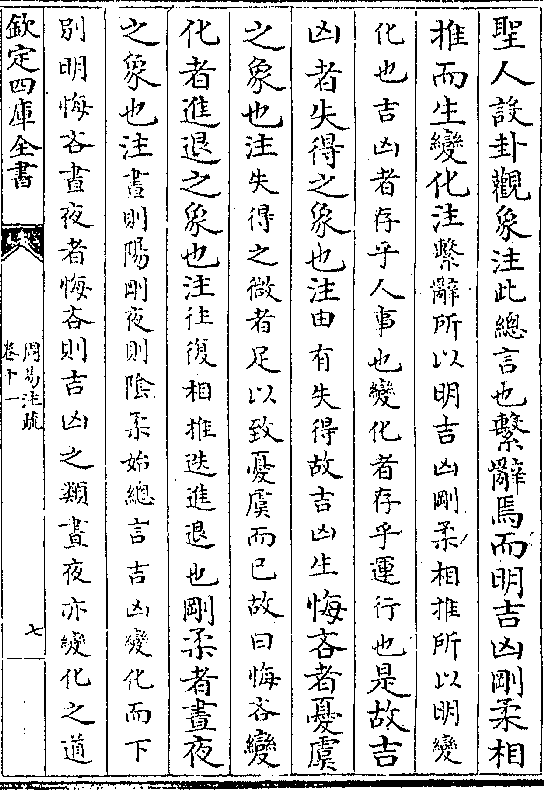 聖人設卦觀象注此總言也繫辭焉而明吉凶剛柔相
推而生變化注繫辭所以明吉凶剛柔相推所以明變
化也吉凶者存乎人事也變化者存乎運行也是故吉
凶者失得之象也注由有失得故吉凶生悔吝者憂虞
之象也注失得之微者足以致憂虞而已故曰悔吝變
化者進退之象也注往復相推迭進退也剛柔者晝夜
之象也注晝則陽剛夜則陰柔始總言吉凶變化而下
别明悔吝晝夜者悔吝則吉凶之類晝夜亦變化之道
欽定四庫全書
周易注疏
卷十一
七